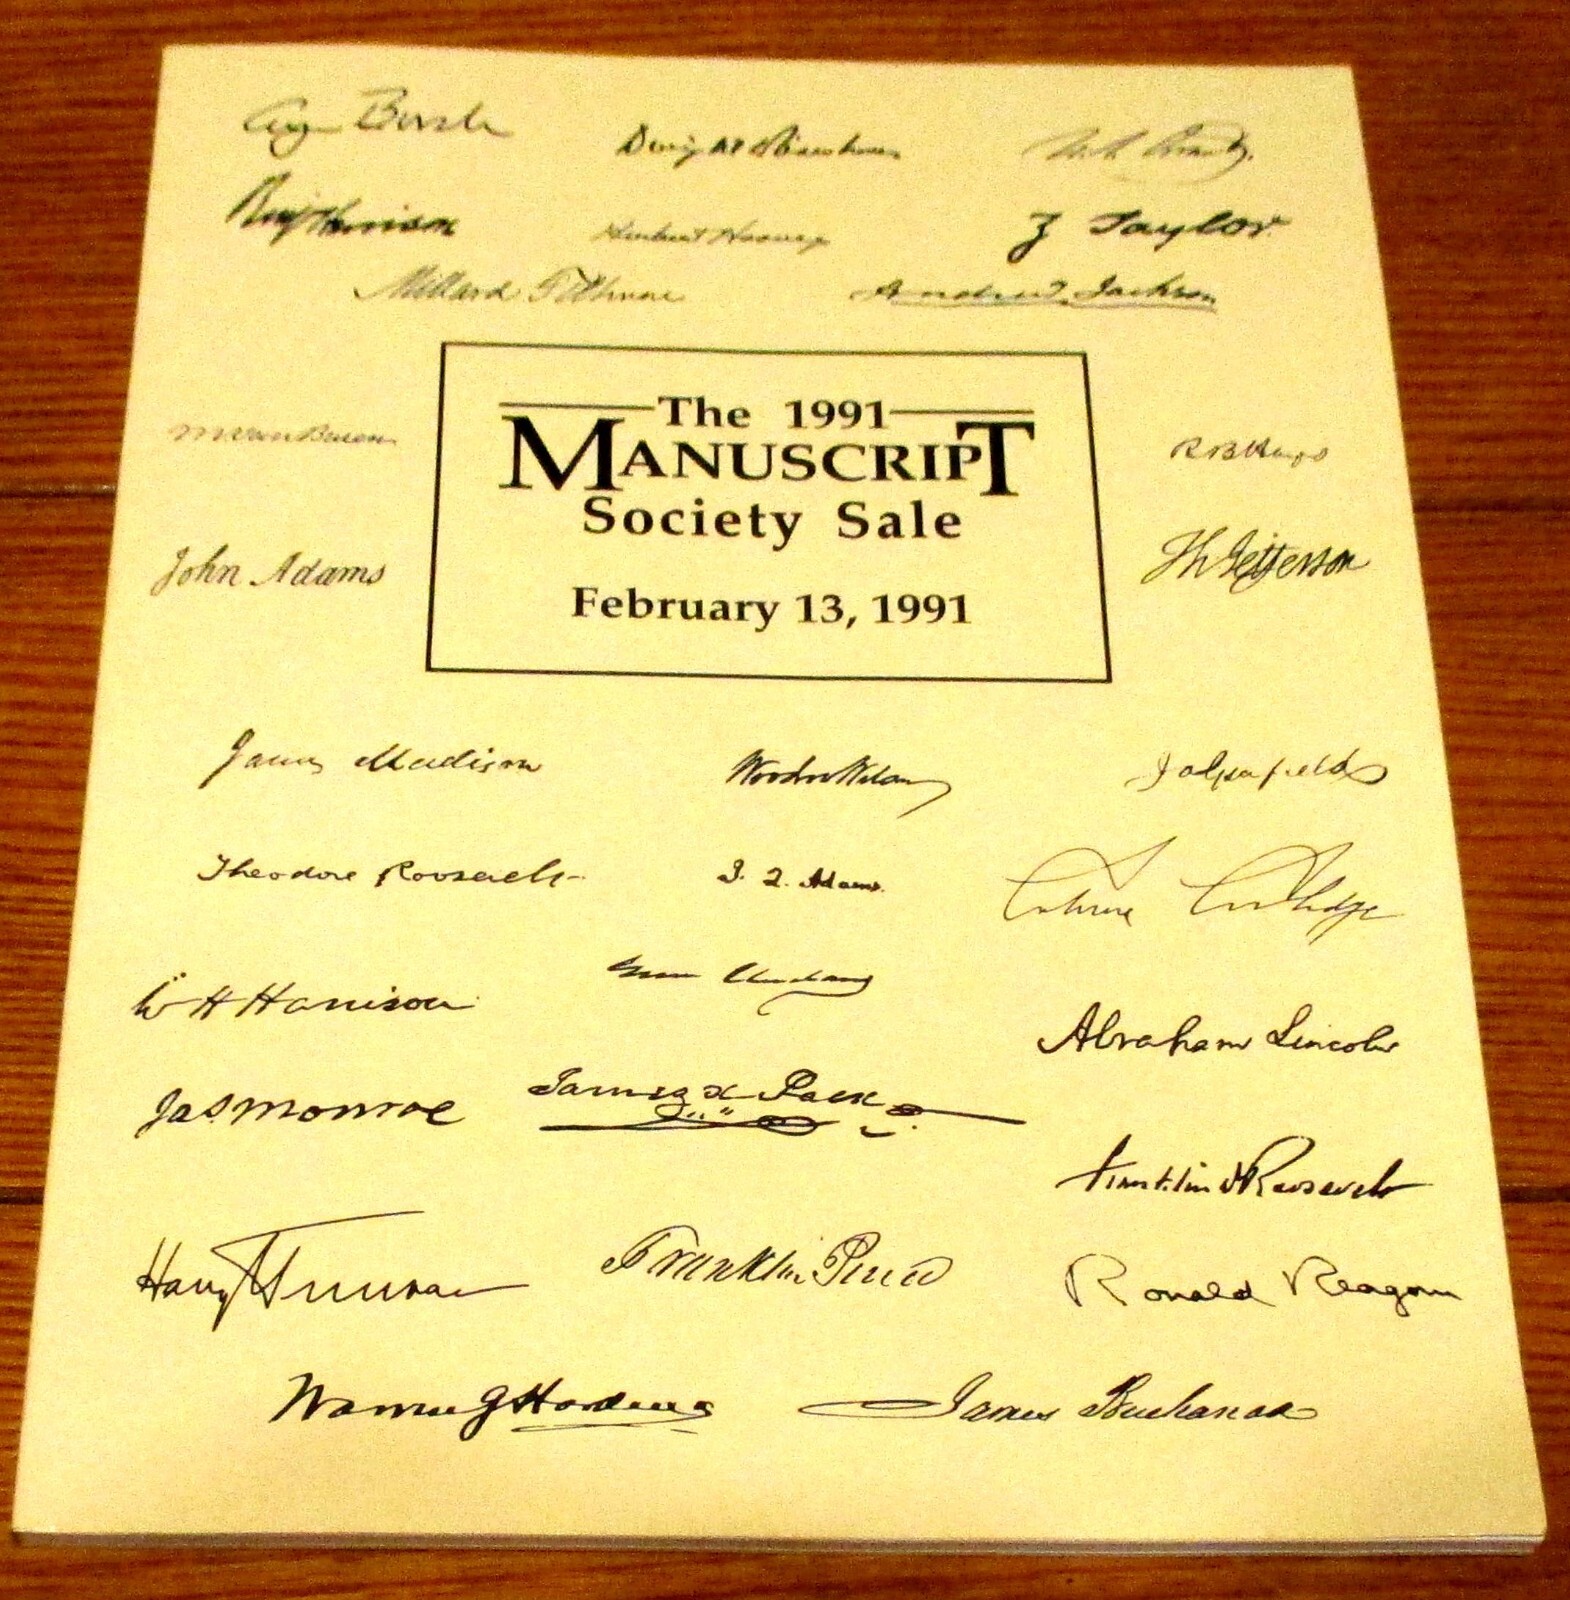 George Bush Dwight D Eisenhower U.S. Grant
Benj Harrison Herbert Hoover Z Taylor
Millard Fillmore Andrew Jackson
The 1991
MANUSCRIPT
Society Sale
February 13, 1991
M Van Buren RB Hayes
John Adams Th Jefferson
James Madison Woodrow Wilson J A Garfield
Theodore Roosevelt J. Q. Adams. Calvin Coolidge
W H Harrison Grover Cleveland Abraham Lincoln
Jas Monroe James K Polk Franklin D Roosevelt
Harry S Truman Franklin Pierce Ronald Reagan
Warren G Harding James Buchanan